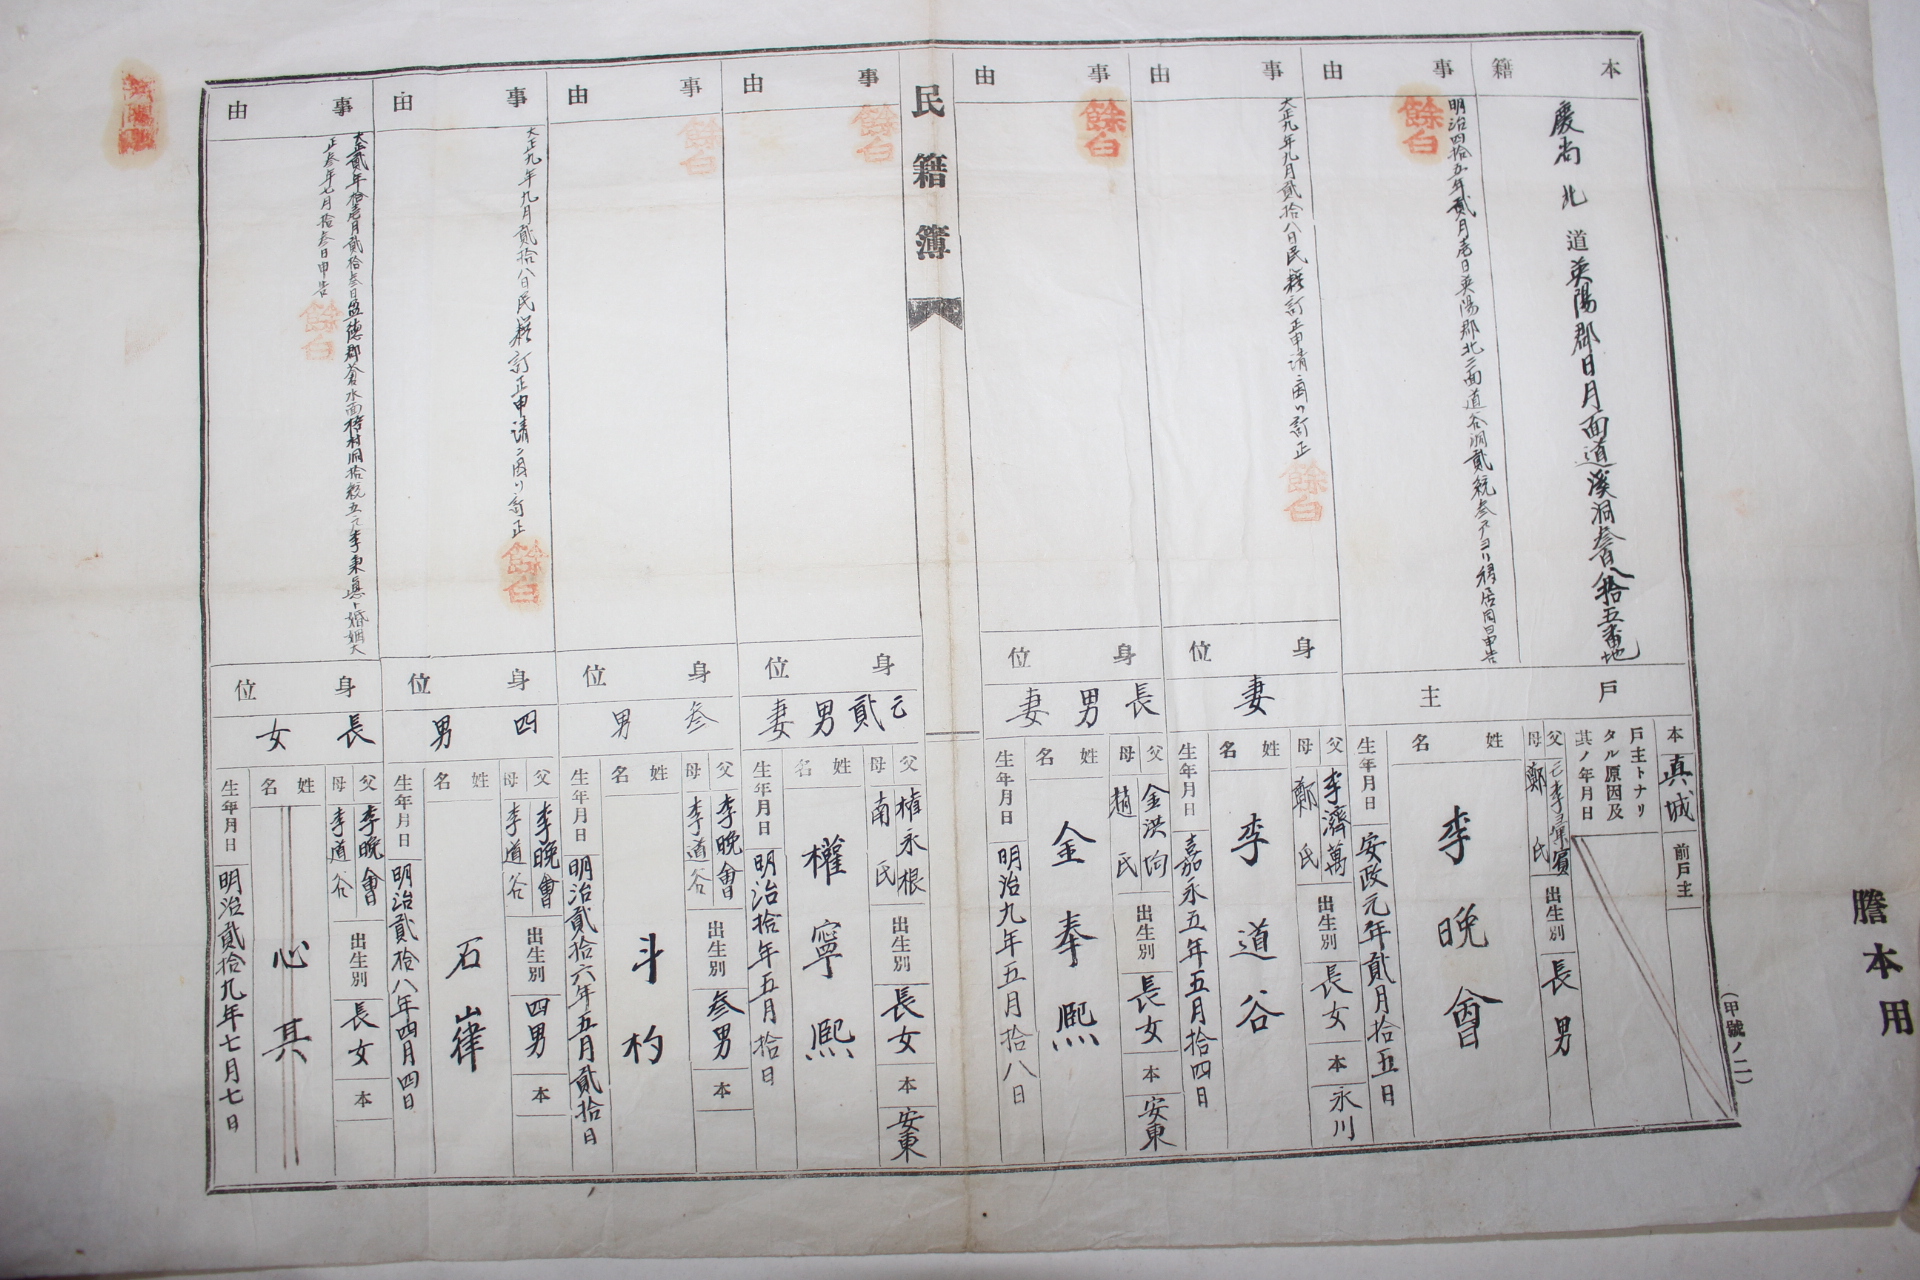 謄本用
(甲號ノ一)
本籍
慶尚北道英陽郡日月面道溪洞叁百八拾五番地
戸主
本
真城
前戸主
戸主トナリタル原因及其ノ年月日
事由
明治四拾五年貳月壱日英陽郡北二面道谷洞貳統叁戸ヨリ移居同日申告
餘白
父
亡李彙賓
母
鄭氏
出生別
長男
姓名
李晚曾
生年月日
安政元年貳月拾五日
事由
大正九年九月貳拾八日民籍訂正申請ニ因リ訂正
餘白
身位
妻
父
李濟萬
母
鄭氏
出生別
長女
本
永川
姓名
李道谷
生年月日
嘉永五年五月拾四日
事由
餘白
身位
長男妻
父
金洪坸
母
趙氏
出生別
長女
本
安東
姓名
金奉熙
生年月日
明治九年五月拾八日
民籍簿
事由
餘白
身位
亡貳男妻
父
權永根
母
南氏
出生別
長女
本
安東
姓名
權寧熙
生年月日
明治拾年五月拾日
事由
餘白
身位
叁男
父
李晚曾
母
李道谷
出生別
叁男
本
姓名
斗杓
生年月日
明治貳拾六年五月貳拾日
事由
大正九年九月貳拾八日民籍訂正申請ニ因リ訂正
餘白
身位
四男
父
李晚曾
母
李道谷
出生別
四男
本
姓名
石嵂
生年月日
明治貳拾八年四月四日
事由
大正貳年拾壱月貳拾叁日盈德郡蒼水面梧村洞拾統五戸李東
ト婚姻大
正叁年七月拾叁日申告
餘白
身位
長女
父
李晚曾
母
李道谷
出生別
長女
本
姓名
心其
生年月日
明治貳拾九年七月七日